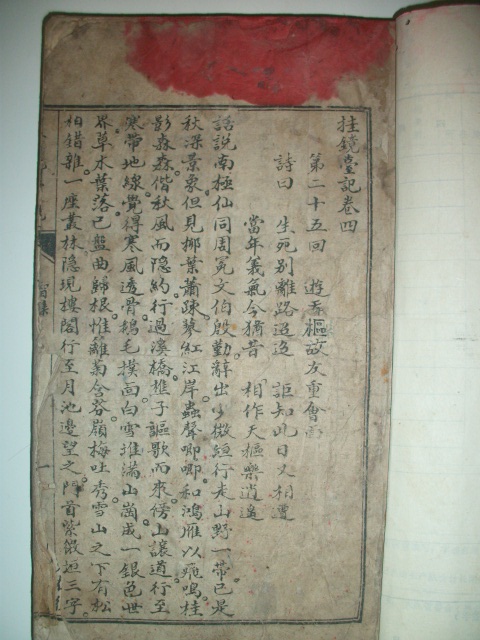 挂鏡臺記卷四
第二十五回　遊天樞故友重會面
詩曰　生死別離路迢迢　詎知此日又相遭
當年義氣今猶昔　相作天樞樂逍遙
話說南極仙同周冕文伯殷勤辭出少微垣行走山野一帶已是
秋深景象但見揶葉蕭疎蓼紅江岸蟲聲唧唧和鴻雁以飛鳴桂
影森森偕秋風而隐約行過溪橋樵子謳歌而來傍山讓道行至
寒帶地線覺得寒風透骨鵝毛撲面白雪堆滿山崗成一銀色世
界草木葉落已盤曲歸根惟籬菊含芬嶺梅吐秀雪山之下有松
柏錯雜一座叢林隐現樓閣行至月池邊望之門首紫微垣三字